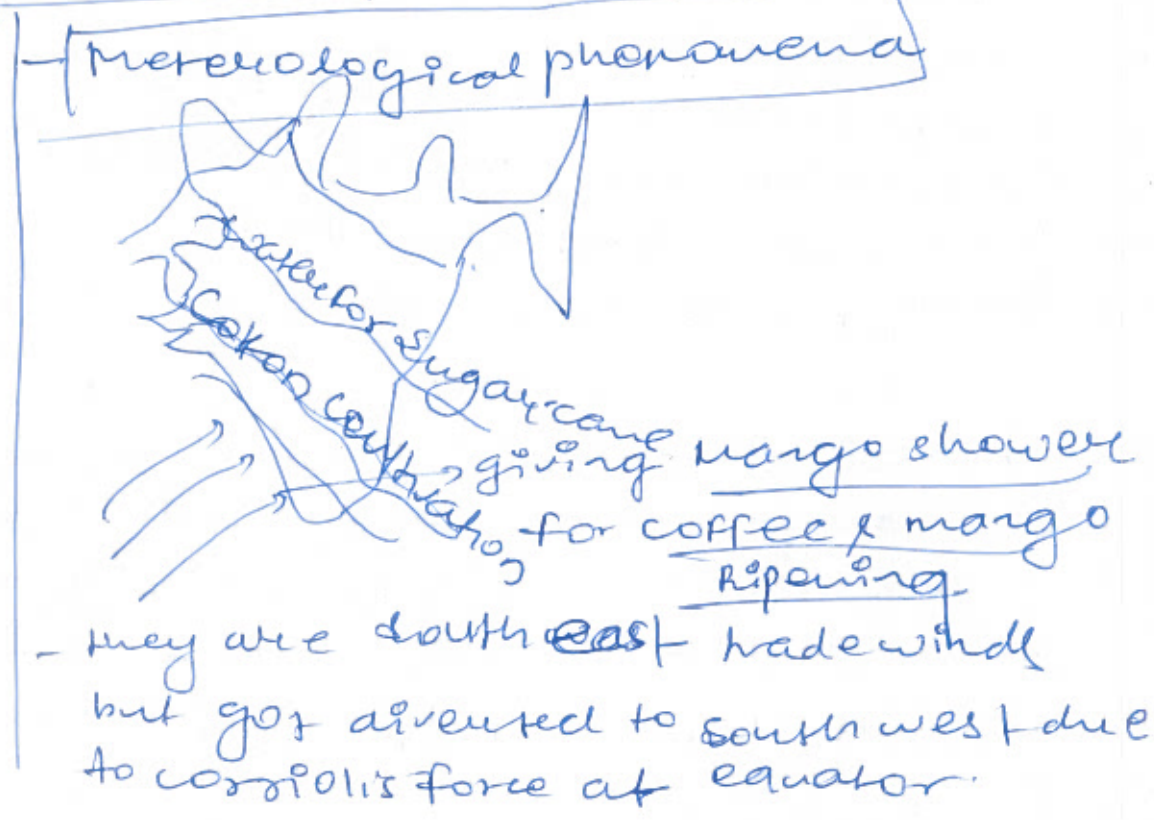 - Metereological phenomena
water for Sugar-cane
Cotton cultivation
→ giving mango shower
for coffee & mango
Ripening
- they are south east trade winds
but got diverted to south west due
to corriolis force at equator.